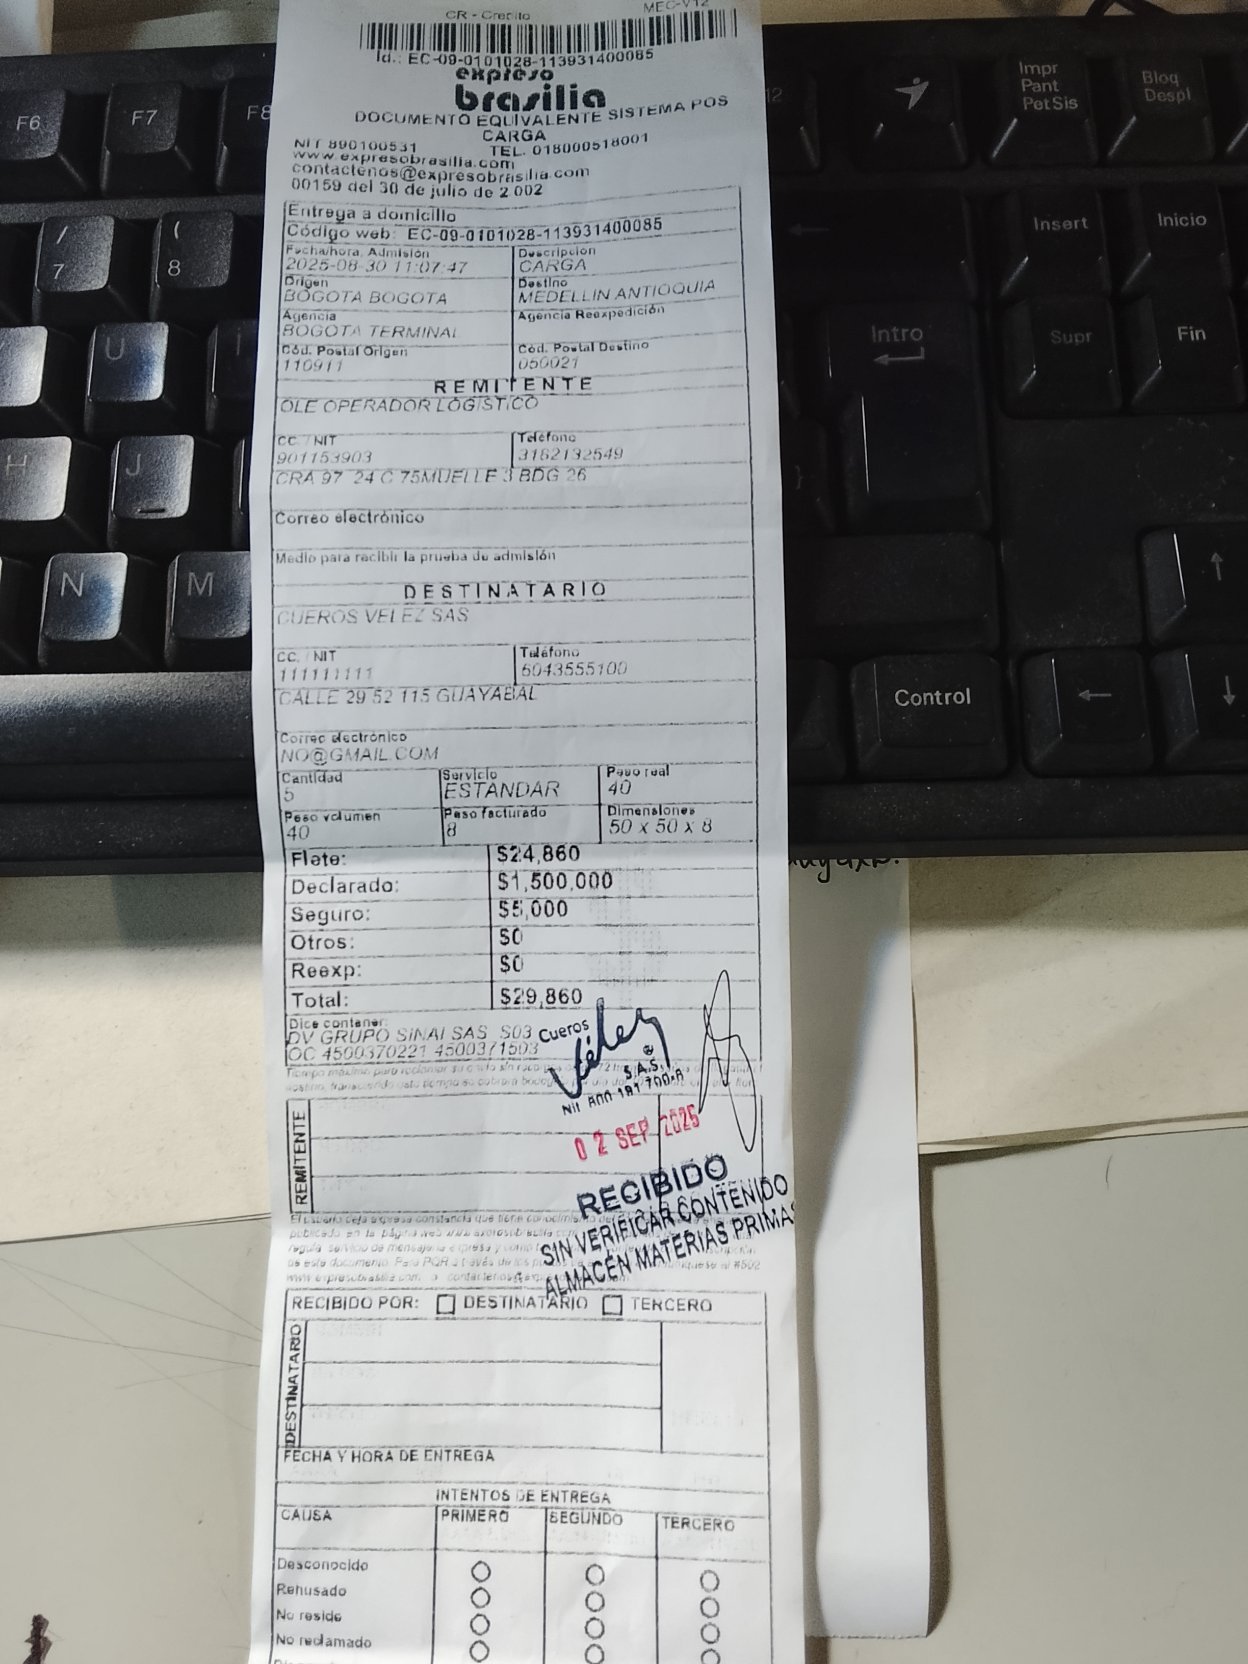 CR - Credito
MEC-V12
Id.: EC-09-0101028-113931400085
expreso
brasilia
DOCUMENTO EQUIVALENTE SISTEMA POS
CARGA
NIT 890100531 TEL. 018000518001
www.expresobrasilia.com
contactenos@expresobrasilia.com
00159 del 30 de julio de 2.002
Entrega a domicilio
Código web: EC-09-0101028-113931400085
Fecha/hora. Admisión Descripcion
2025-08-30 11:07:47 CARGA
Origen Destino
BOGOTA BOGOTA MEDELLIN ANTIOQUIA
Agencia Agencia Reexpedición
BOGOTA TERMINAL
Cód. Postal Origen Cód. Postal Destino
110911 050021
REMITENTE
OLE OPERADOR LOGISTICO
CC. / NIT Teléfono
901153903 3182132549
CRA 97 24 C 75MUELLE 3 BDG 26
Correo electrónico
Medio para recibir la prueba de admisión
DESTINATARIO
CUEROS VELEZ SAS
CC. / NIT Teléfono
111111111 6043555100
CALLE 29 52 115 GUAYABAL
Correo electrónico
NO@GMAIL.COM
Cantidad Servicio Peso real
5 ESTANDAR 40
Peso volumen Peso facturado Dimensiones
40 8 50 x 50 x 8
Flete: $24,860
Declarado: $1,500,000
Seguro: $5,000
Otros: $0
Reexp: $0
Total: $29,860
Dice contener:
DV GRUPO SINAI SAS S03
OC 4500370221 4500371503
Cueros
Vélez
S.A.S.
Nit 800.191.700-8
02 SEP 2025
RECIBIDO
SIN VERIFICAR CONTENIDO
ALMACÉN MATERIAS PRIMAS
REMITENTE
RECIBIDO POR: DESTINATARIO TERCERO
DESTINATARIO
FECHA Y HORA DE ENTREGA
INTENTOS DE ENTREGA
CAUSA PRIMERO SEGUNDO TERCERO
Desconocido
Rehusado
No reside
No reclamado
F6
F7
F8
12
Impr
Pant
PetSis
Bloq
Despl
/
7
(
8
Insert
Inicio
U
I
Intro
Supr
Fin
H
J
N
M
Control